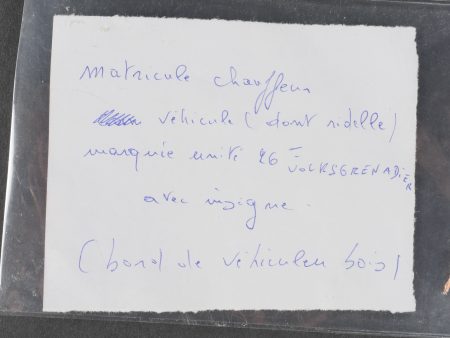 Matricule chauffeur
véhicule (dont ridelle)
marquée unité 26 VOLKSGRENADIER
avec insigne.
(bord de véhicule bois)